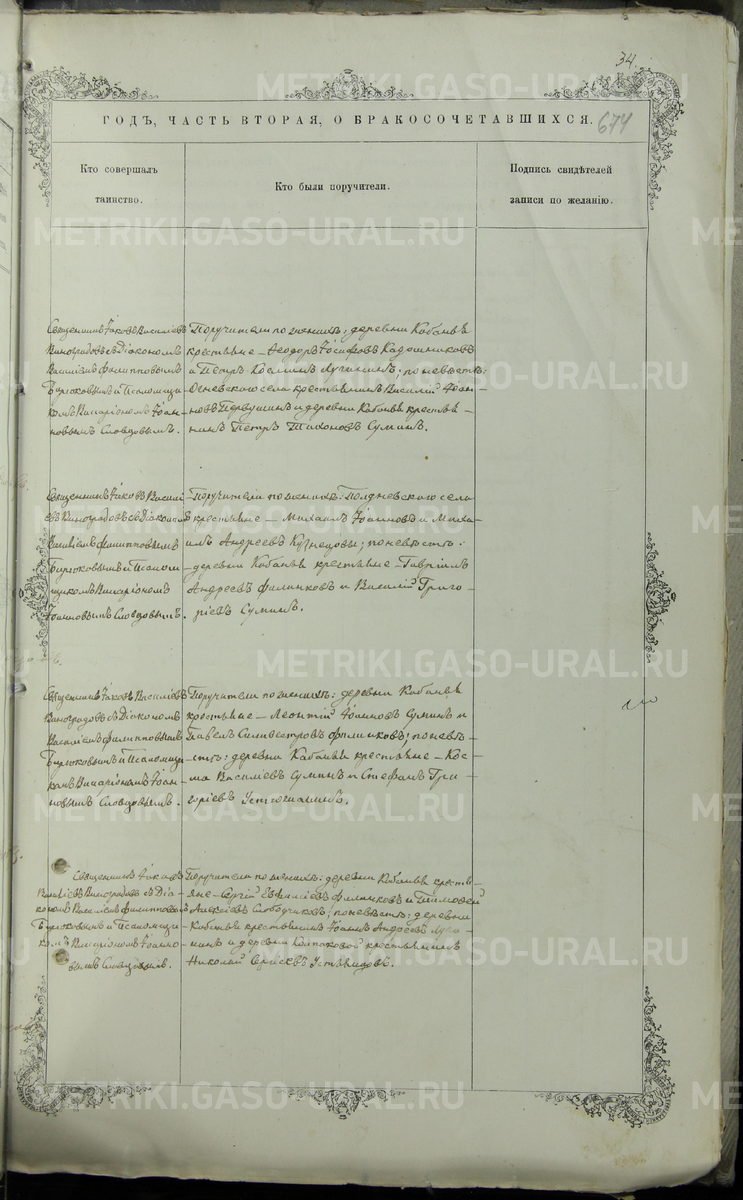 34
ГОДЪ, ЧАСТЬ ВТОРАЯ, О БРАКОСОЧЕТАВШИХСЯ.
674
Кто совершалъ
таинство.
Кто были поручители.
Подпись свидѣтелей
записи по желанію.
Священникъ Іаковъ Василіевъ
Виноградовъ съ Діакономъ
Василіемъ Филипповымъ
Бирюковымъ и Псаломщи-
комъ Виларіономъ Іоан-
новымъ Словцовымъ.
Поручители по женихѣ: деревни Кабаньѣ
крестьяне – Ѳеодоръ Іосифовъ Кадошниковъ
и Петръ Косминъ Лучининъ; по невѣстѣ:
Огневскаго села крестьянинъ Василій Іоан-
новъ Первушинъ и деревни Кабаньѣ крестья-
нинъ Петръ Тихоновъ Суминъ.
Священникъ Іаковъ Василі-
евъ Виноградовъ съ Діакономъ
Василіемъ Филипповымъ
Бирюковымъ и Псалом-
щикомъ Виларіономъ
Іоанновымъ Словцовымъ.
Поручители по женихѣ: Полдневскаго села
крестьяне – Михаилъ Іоанновъ и Миха-
илъ Андреевъ Кузнецовы; по невѣстѣ:
деревни Кабаньѣ крестьяне – Гавріилъ
Андреевъ Филинковъ и Василій Григо-
ріевъ Суминъ.
Священникъ Іаковъ Василіевъ
Виноградовъ съ Діакономъ
Василіемъ Филипповымъ
Бирюковымъ и Псаломщи-
комъ Виларіономъ Іоан-
новымъ Словцовымъ.
Поручители по женихѣ: деревни Кабаньѣ
крестьяне – Леонтій Іоанновъ Суминъ и
Павелъ Силивестровъ Филинковъ; по невѣ-
стѣ: деревни Кабаньѣ крестьяне – Кос-
ма Василіевъ Суминъ и Стефанъ Гри-
горіевъ
Священникъ Іаковъ
Василіевъ Виноградовъ съ Діа-
кономъ Василіемъ Филипповымъ
Бирюковымъ и Псаломщи-
комъ Виларіономъ Іоанно-
вымъ Словцовымъ.
Поручители по женихѣ: деревни Кабаньѣ крестья-
не – Сергій Филинковъ и Тимофей
Алексіевъ Слободчиковъ; по невѣстѣ: деревни
Кабаньѣ крестьянинъ Іоаннъ Андреевъ Лучи-
нинъ и деревни крестьянинъ
Николай
METRIKI.GASO-URAL.RU